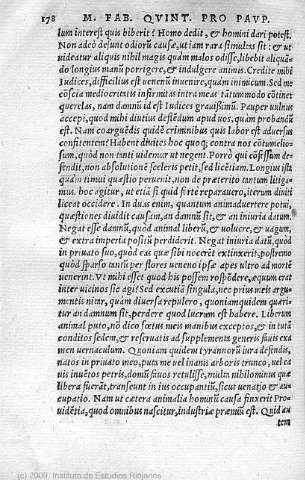 178 M. FAB. QVINT. PRO PAVP.
lum interest quis biberit! Homo dedit, & homini dari potest.
Non adeò desunt odiorũ causæ, ut iam rara simulas sit: & ut
uideatur aliquis nihil magis quàm malos odisse, libebit aliquã-
do longius manũ porrigere, & indulgere animis. Credite mihi
Iudices, difficilius est uenenũ inuenire, quàm inimicum. Sed me
coscia mediocritatis infirmitas intra meas tãtummodo cõtinet
querelas, nam damnũ id est Iudices grauißimũ. Pauper uulnus
accepi, quod mihi diutius deflendum apud uos, quàm probandum
est. Nam coarguẽdis quidẽ criminibus quis labor est aduersus
confitentem! Habent diuites hoc quoq; contra nos cõtumelio-
sum, quòd non tanti uidemur ut negent. Porrò qui cõfessum de-
fendit, non absolutionẽ sceleris petit, sed licentiam. Longius ista
quàm timui quæstio peruenit, non de præterito tantum litiga-
mus, hoc agitur, ut etiã si quid fortè reparauero, iterum diuiti
liceat occidere. In duas enim, quantum animaduertere potui,
quæstiones diuidit causam, an damnũ sit, & an iniuria datum.
Negat esse damnũ, quòd animal liberũ, & uolucre, & uagum,
& extra imperia positũ perdiderit. Negat iniuria datũ, quòd
in priuato suo, quòd eas quæ sibi nocerẽt extinxerit, postremo
quòd sparso tantũ per flores ueneno ipsæ apes ultro ad mortẽ
uenerint. Vt mihi esset quòd his possem respõdere, æquum erat
inter uicinos sic agi! Sed excutiã singula, nec prius meis argu-
mentis nitar, quàm diuersa repulero, quoniam quidem quæri-
tur an damnum sit, perdere quod lucrum est habere. Liberum
animal puto, nõ dico fœtus meis manibus exceptos, & in tutò
conditos sedem, & reseruatis ad supplementa generis fauis exa-
men uernaculum. Quoniam quidem tyrannorũ iura defendis,
natos in priuato meo, puta me uel inanis arboris trunco, uel ca-
uis inuẽtos petris, domũ fauos retulisse, multa nihilominus quæ
libera fuerãt, transeunt in ius occupantiũ, sicut uenatio & au-
cupatio. Nam ut cætera animalia hominũ causa finxerit Pro-
uidẽtia, quod omnibus nascitur, industriæ præmiũ est. Quid au-
tem
(c) 2009, Instituto de Estudios Riojanos